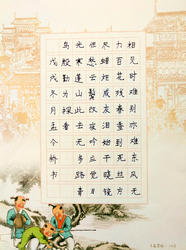 相见时难别亦难东风无
力百花残春蚕到死丝方
尽蜡炬成灰泪始干晓镜
但愁云鬓改夜吟应觉月
光寒蓬山此去无多路青
鸟殷勤为探看
戊戌冬月孟今桥书